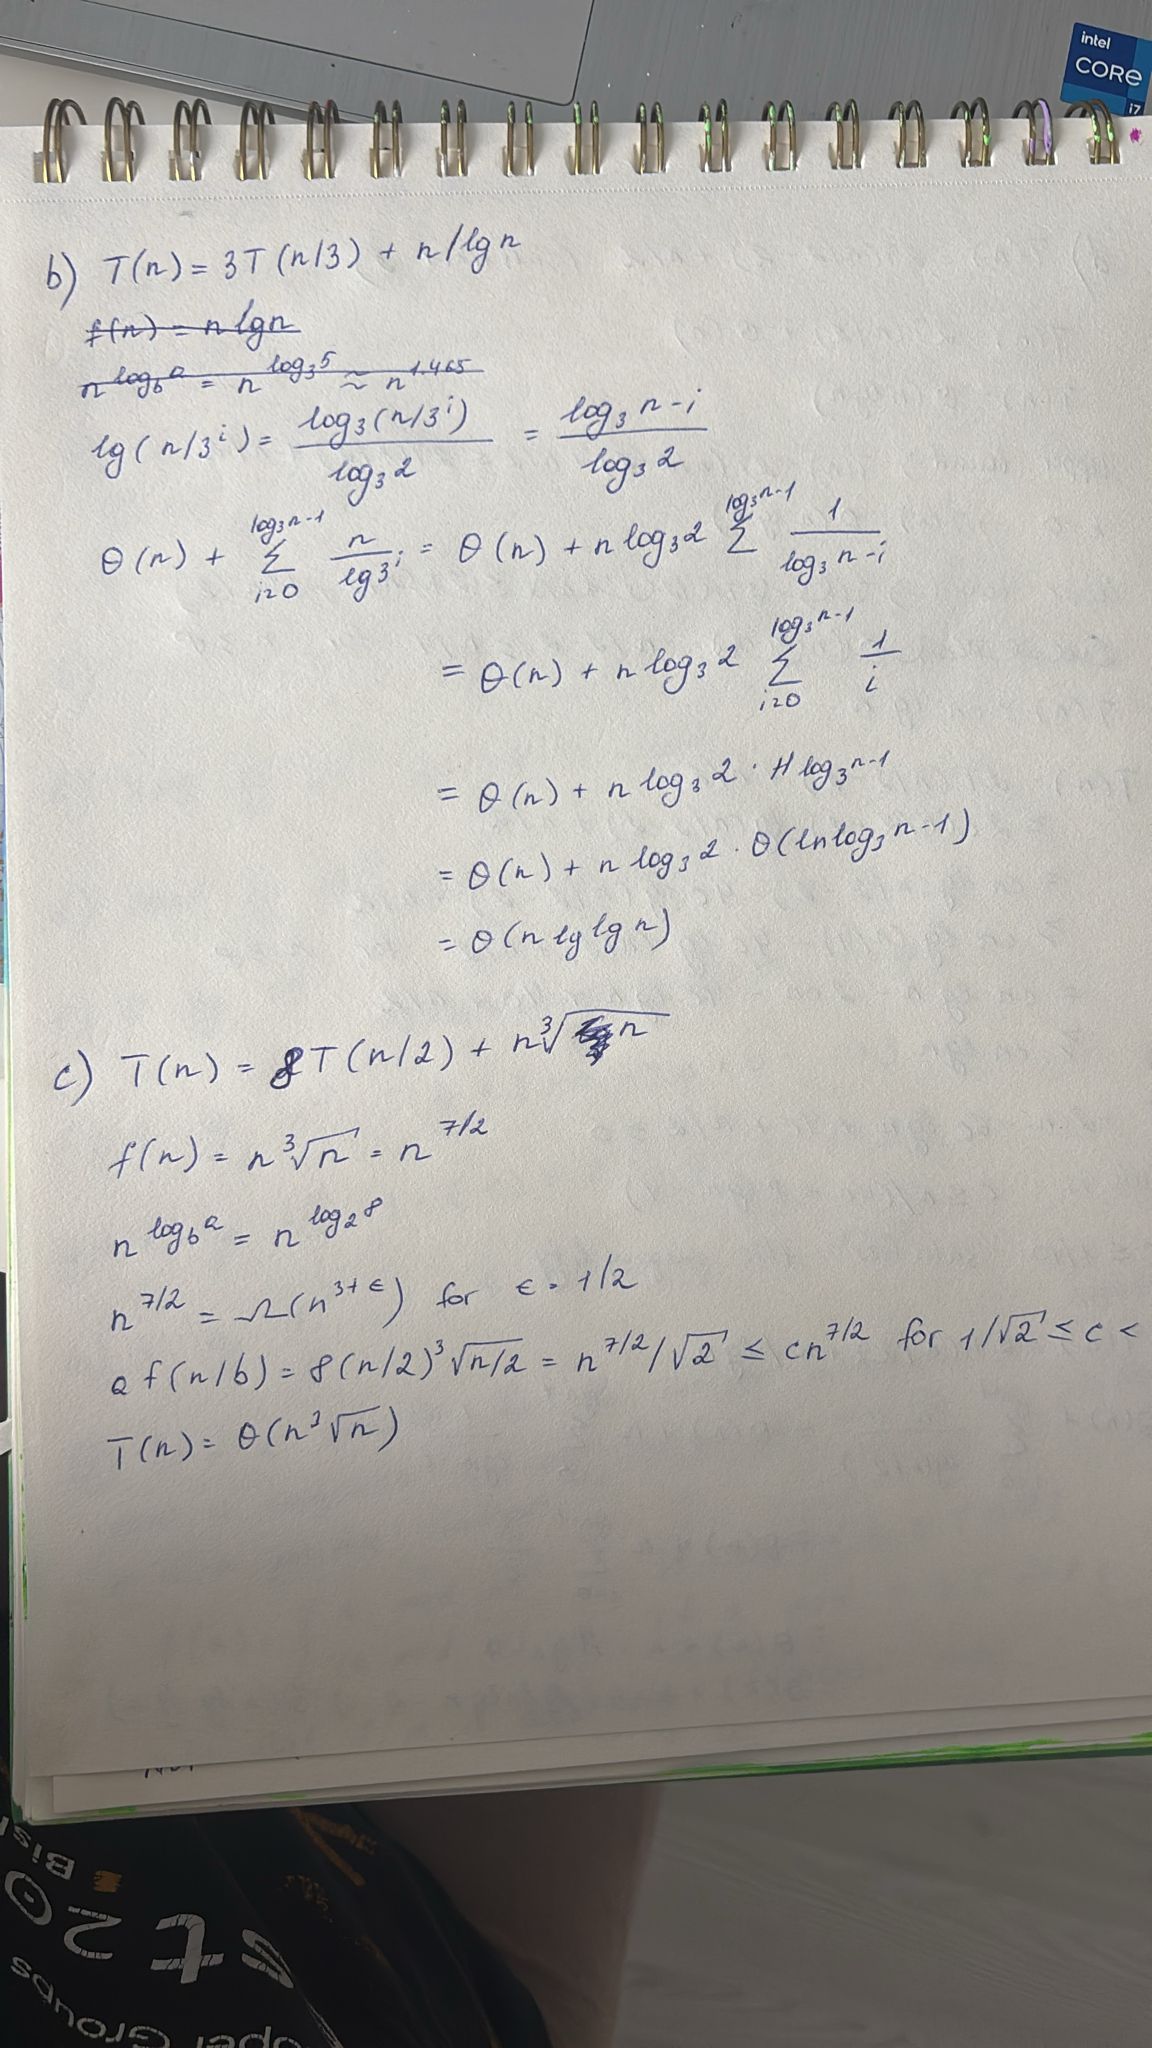 intel
CORE
i7
b) T(n) = 3T(n/3) + n/lg n
f(n) = n lg n
n^(log_b a) = n^(log_3 5) ≈ n^1.465
lg(n/3^i) = log_3(n/3^i) / log_3 2 = (log_3 n-i) / log_3 2
θ(n) + Σ_{i=0}^{log_3 n-1} n / lg 3^i = θ(n) + n log_3 2 Σ^{log_3 n-1} 1 / (log_3 n-i)
= θ(n) + n log_3 2 Σ_{i=0}^{log_3 n-1} 1/i
= θ(n) + n log_3 2 · H log_3 n-1
= θ(n) + n log_3 2 · θ(ln log_3 n-1)
= θ(n lg lg n)
c) T(n) = 8T(n/2) + n ³√n
f(n) = n ³√n = n^(7/2)
n^(log_b a) = n^(log_2 8)
n^(7/2) = Ω(n^(3+ε)) for ε = 1/2
a f(n/b) = 8(n/2)³ √(n/2) = n^(7/2)/√2 ≤ cn^(7/2) for 1/√2 ≤ c <
T(n) = θ(n³√n)
st20